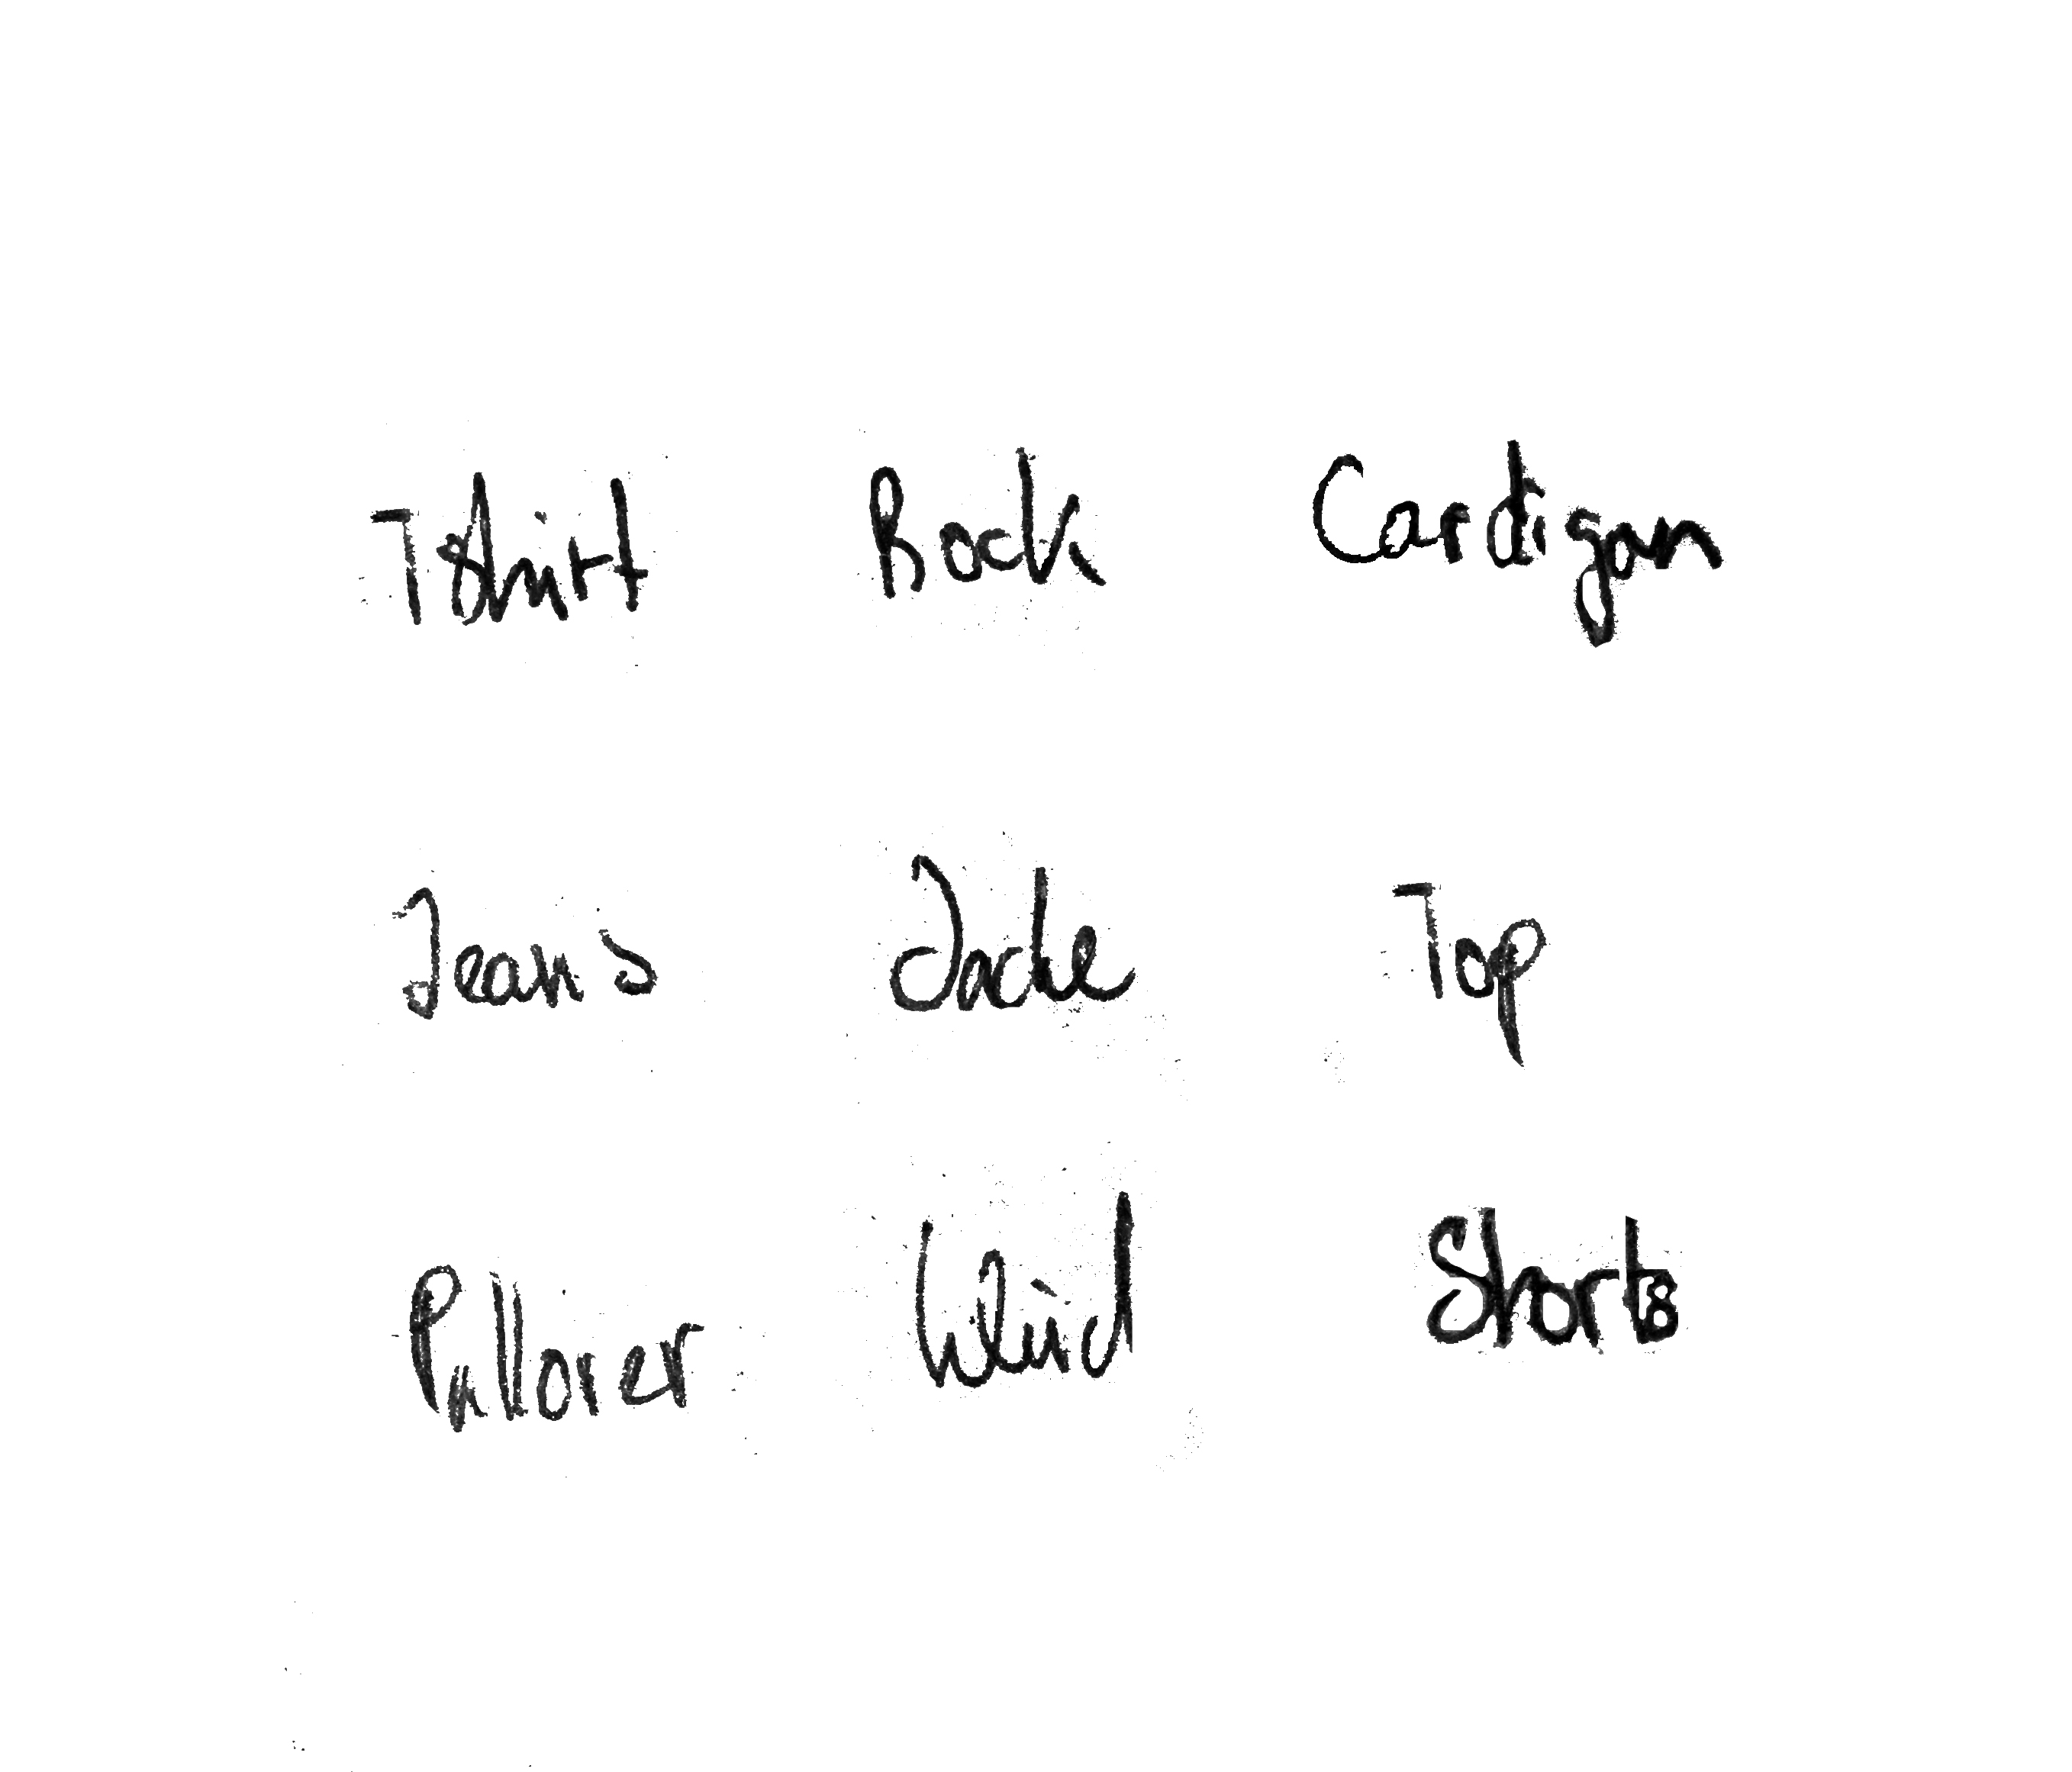 Tshirt Rock Cardigan
Jeans Jacke Top
Pullover Kleid Shorts